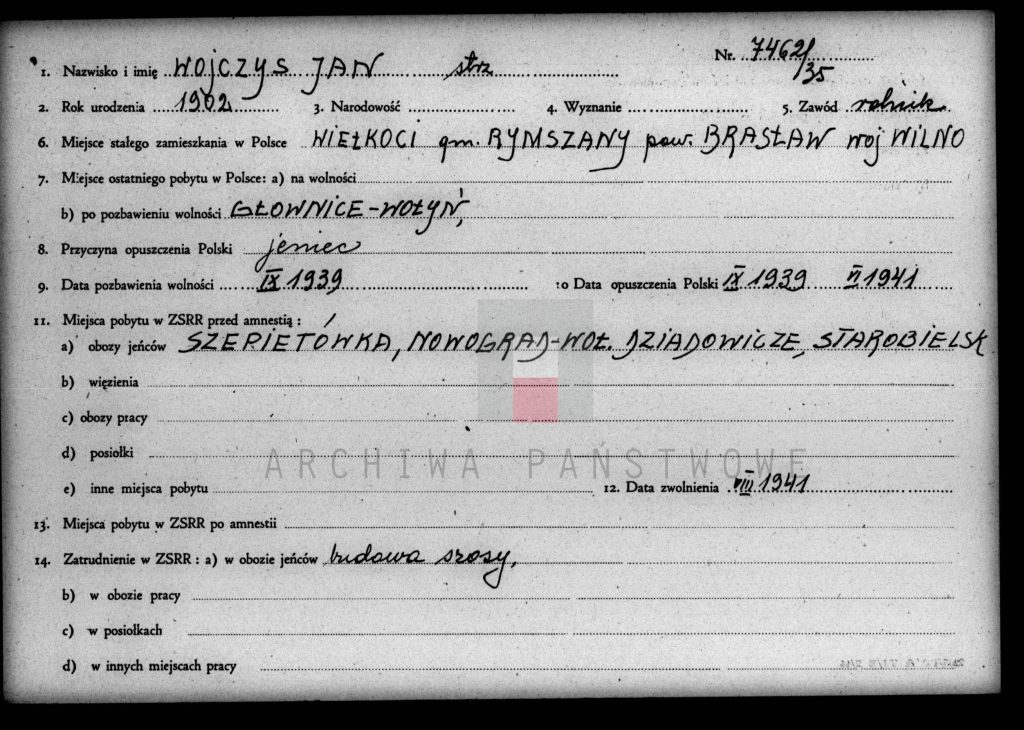 Nr. 7462/35
1. Nazwisko i imię WOJCZYS JAN strz
2. Rok urodzenia 1902 3. Narodowość 4. Wyznanie 5. Zawód rolnik
6. Miejsce stałego zamieszkania w Polsce WIEŁKOCI gm. RYMSZANY pow. BRASŁAW woj WILNO
7. Miejsce ostatniego pobytu w Polsce: a) na wolności
b) po pozbawieniu wolności GŁOWNICE-WOŁYŃ,
8. Przyczyna opuszczenia Polski jeniec
9. Data pozbawienia wolności IX 1939 10 Data opuszczenia Polski IX 1939 VI 1941
11. Miejsca pobytu w ZSRR przed amnestią :
a) obozy jeńców SZEPIETÓWKA, NOWOGRAD-WOŁ. DZIADOWICZE, STAROBIELSK
b) więzienia
c) obozy pracy
d) posiołki
ARCHIWA PAŃSTWOWE
e) inne miejsca pobytu 12. Data zwolnienia VIII 1941
13. Miejsca pobytu w ZSRR po amnestii
14. Zatrudnienie w ZSRR : a) w obozie jeńców budowa szosy,
b) w obozie pracy
c) w posiołkach
d) w innych miejscach pracy